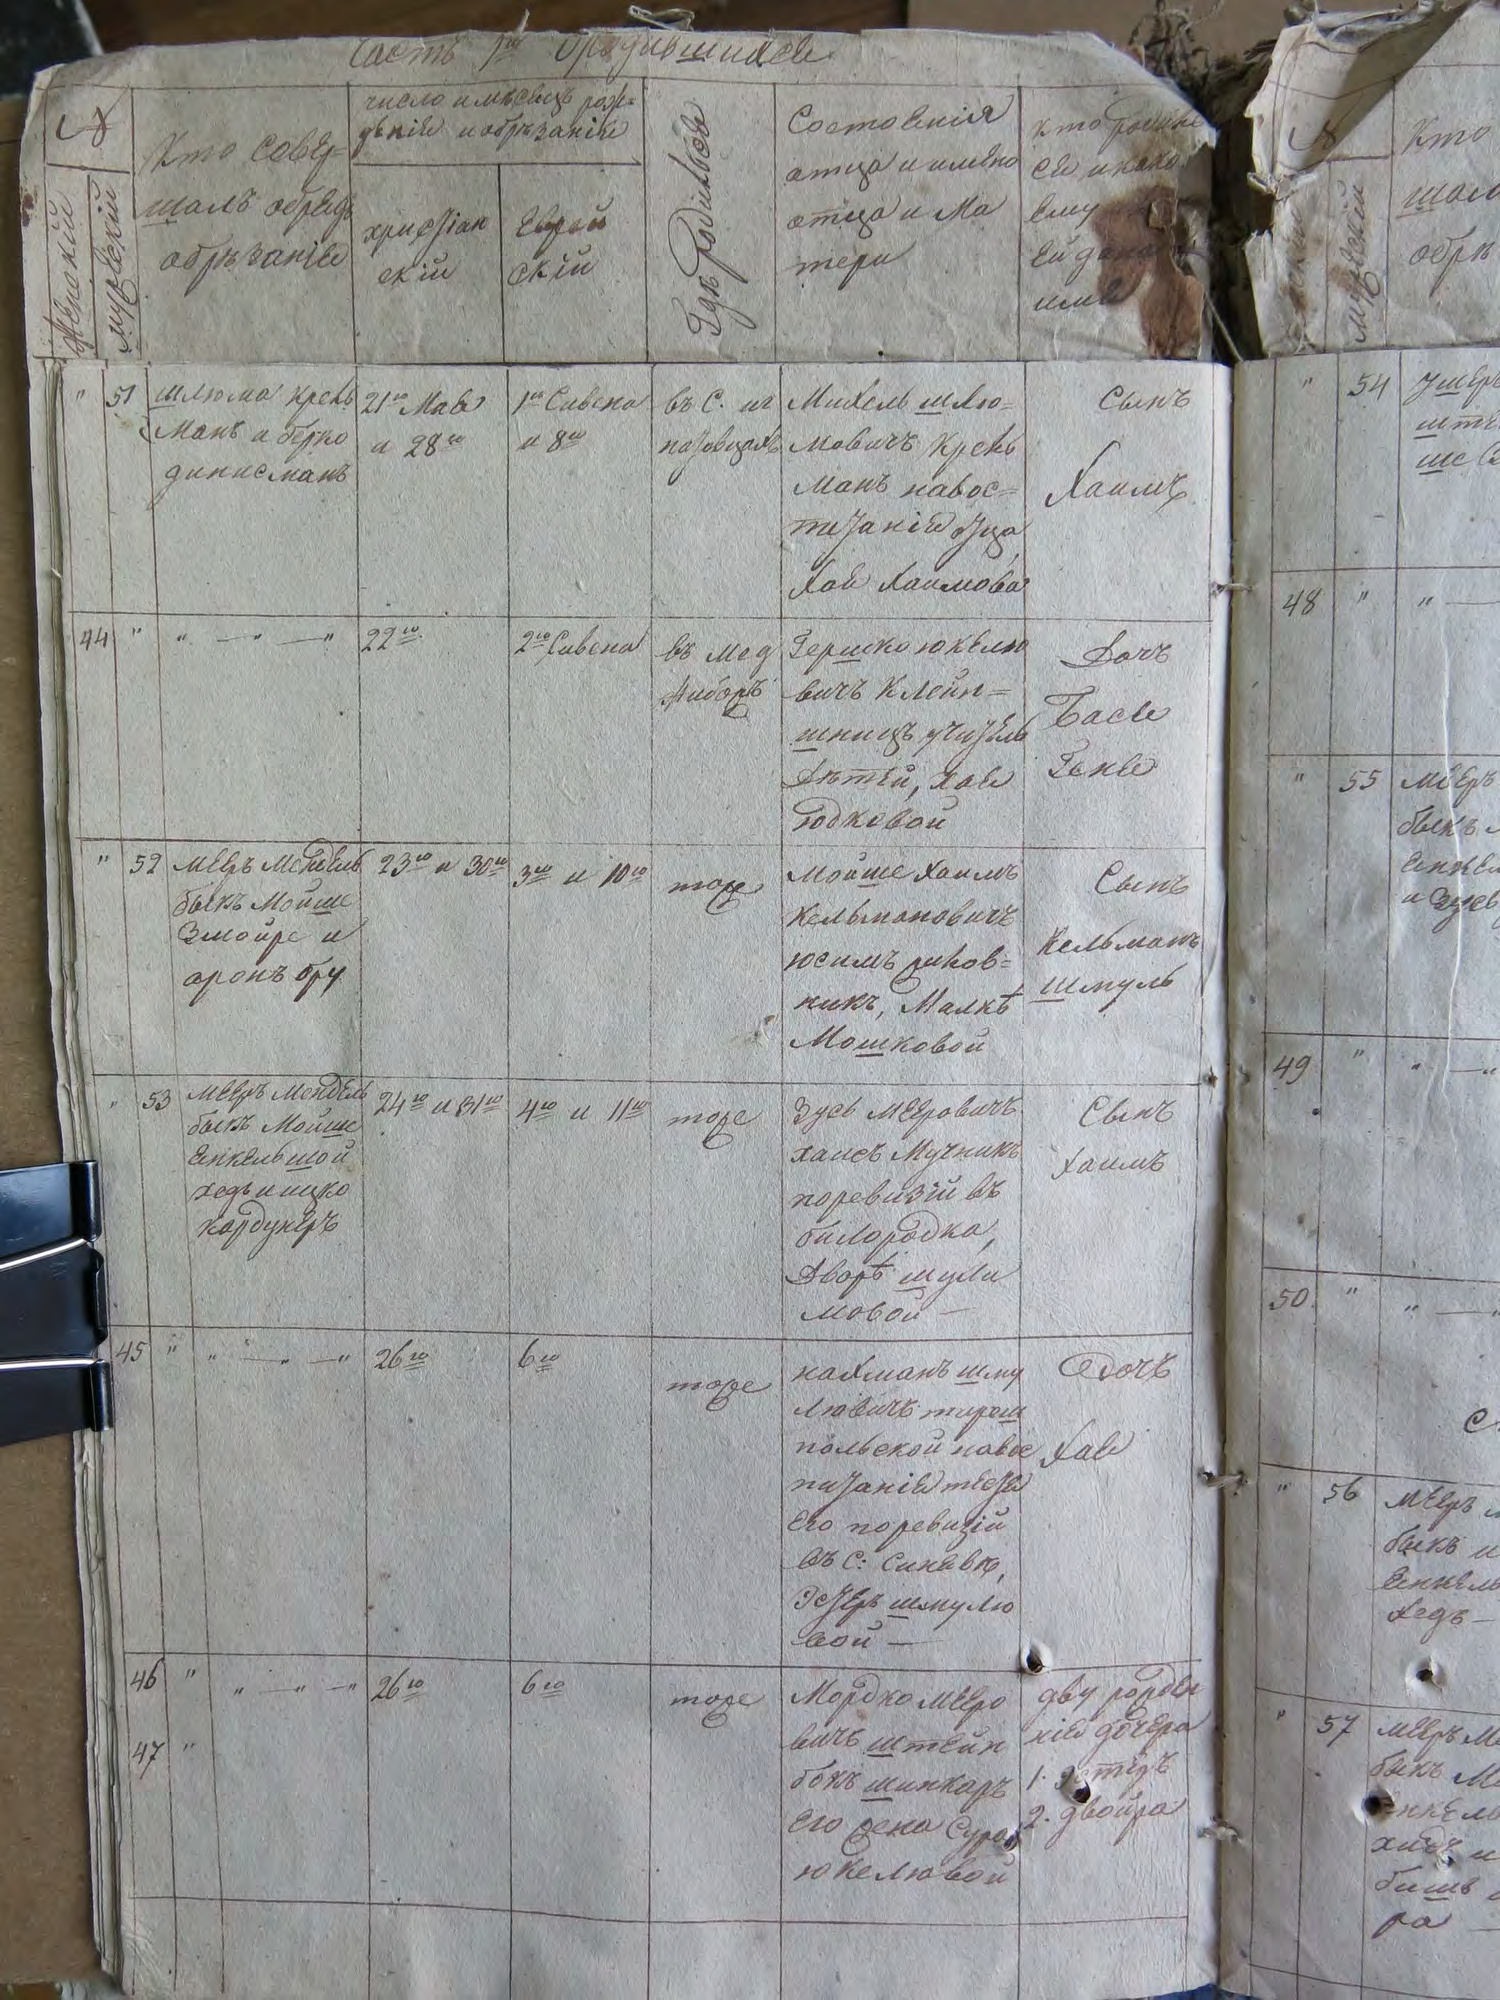 Часть 1го Ородившихся
№
Женский
мужеский
Кто совер=
шалъ обрядъ
обрѣзанія
число и мѣсяцъ рож=
дѣнія и обрѣзанія
христіан
скій
Еврей
скій
Гдѣ родился
Состоянія
отца и имяно
отца и Ма
тери
кто родил
ся и како
ему
ей дано
имя
" 51
шлюма Крель
Манъ и берко
динисманъ
21го Мая
и 28го
1го Сивена
и 8го
въ С.
Михель шлю=
мовичъ Крель
Манъ навос=
питанія отца
Хая Хаимова
Сынъ
Хаимъ
44 " " — " — "
22го
2го Сивена
въ Мед
жиборъ
Гершко юкелю
вичъ Клейн=
шницъ учитель
дѣтей, Хая
юдковой
Дочь
Бася
Геня
" 52
Мееръ Мендель
быкъ Мойше
Змойре и
аронъ бру
23го и 30го
3го и 10го
тоже
Мойше Хаимъ
Кельмановичъ
юсимъ
никъ, Малкѣ
Мошковой
Сынъ
Кельманъ
шмуль
" 53
Мееръ Мендель
быкъ Мойше
Енкель шой
хедъ и ицко
кордунеръ
24го и 31го
4го и 11го
тоже
Зусь Мееровичъ
хаисъ Мучникъ
поревизіи въ
билородка,
Дворѣ шули
мовой —
Сынъ
Хаимъ
45 " " — " — "
26го
6го
тоже
нахманъ шму
лювичъ
польской навос
питаніе тестя
Его поревизіи
въ С: Синявкѣ,
Эстеръ шмулю
вой —
Дочь
Хая
46 " " — " — "
47 "
26го
6го
тоже
Мордко Мееро
вичъ штейн
бокъ шинкаръ
Его жена Сура
юкелювой
дву рожде
ніе дочера
1. Эстеръ
2. двойра
№
мужеский
Кто
шалъ
обрѣ
" 54
48 " " —
" 55
Мееръ
быкъ М
Енкель
и Зусь
49 " " — "
50 " " —
" 56
Мееръ М
быкъ и
Енкель
хедъ —
" 57
Мееръ Ме
быкъ Мо
Енкель
хедъ и
бишъ
ра —